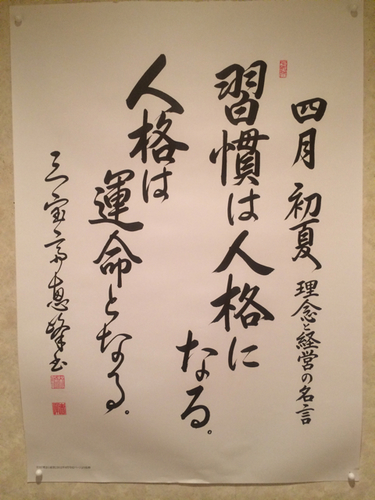 四月 初夏 理念と経営の名言
習慣は人格に
なる。
人格は
運命となる。
三宝斎恵峰書